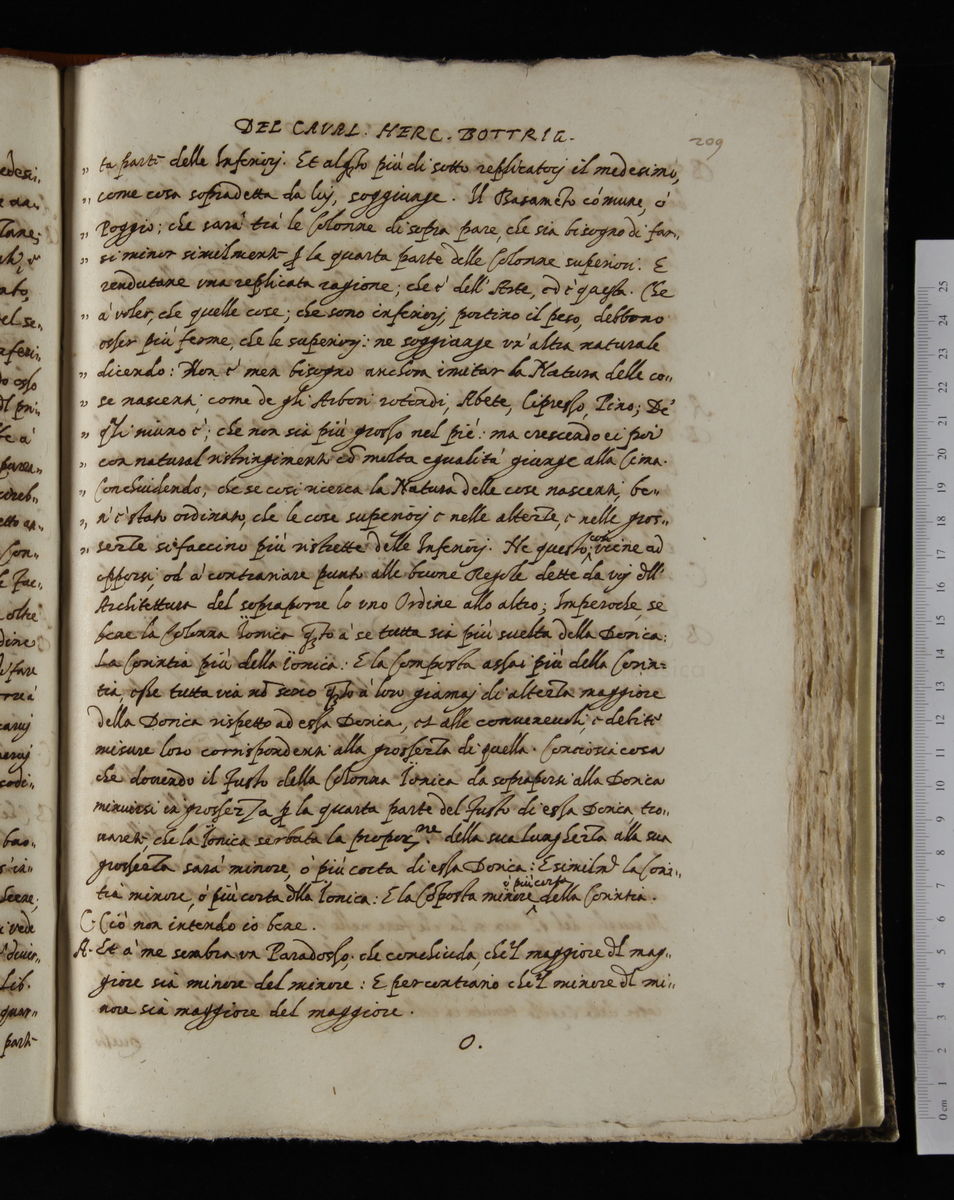 DEL CAVAL. HERC. BOTTRIG.
209
„ ta parte delle Inferiorj. Et alq̃to più di sotto replicatoçi il medesimo,
„ come cosa sopradetta da luj, soggiunge. Il Basamẽto cómune, ò
„ Poggio; che sarà trà le Colonne di sopra pare, che sia bisogno di far„
„ si minor similmente ꝑ la quarta parte delle Colonne superiori. E
rendutane una replicata ragione; che è dell' Arte, ed è questa. Che
„ à voler, che quelle cose; che sono inferiorj, portino il peso, debbono
esser più ferme, che le superiorj: ne soggiunge un' altra naturale
„ dicendo: Non è men bisogno anchora imitar la Natura delle co„
„ se nascenti; come de gli Arbori rotondi, Abete, Cipresso, Pino; De'
„ q̃li niuno è; che non sia più grosso nel piè: ma crescendo ei poi
„ con natural ristringimento ed molta egualità giunge alla Cima.
„ Conchiudendo, che se così ricerca la Natura delle cose nascenti, be„
„ n' è stato ordinato, che le cose superiorj e nelle altezze, e nelle gros„
„ sezze si faccino più ristrette delle Inferiorj. Ne questo, viene ad
opporsi, od à contrariare punto alle buone Regole dette da voj dll'
Architettura del sopraporre lo uno Ordine allo altro; Imperoche, se
bene la Colonna Ïonica q̃to à se tutta sia più suelta della Dorica:
La Corintia più della Ïonica: E la Composta assai più della Corin=
tia, che tutta via nõ sono q̃to à loro giamaj di altezza maggiore
della Dorica rispetto ad essa Dorica, et alle conuenevoli, e debite
misure loro corrispondenti alla grossezza di quella. Conciosia cosa
che dovendo il fusto della Colonna Ïonica da soprapórsi alla Dorica
minuirsi in grossezza ꝑ la quarta parte del fusto di essa Dorica tro„
varete, che la Ionica serbata la proporne. della sua lunghezza alla sua
grossezza sarà minore, ò più corta di essa Dorica: E similmẽ la Cori„
ò più corta
tia minore, ò più corta dlla Ïonica: E la Cõposta minore della Corintia.
C- Ciò non intendo io bene.
A- Et à me sembra un Paradosso, che conchiuda, che 'l maggiore dl mag„
giore sia minore del minore: E per contrario che 'l minore dl mi„
nore sia maggiore del maggiore.
O.